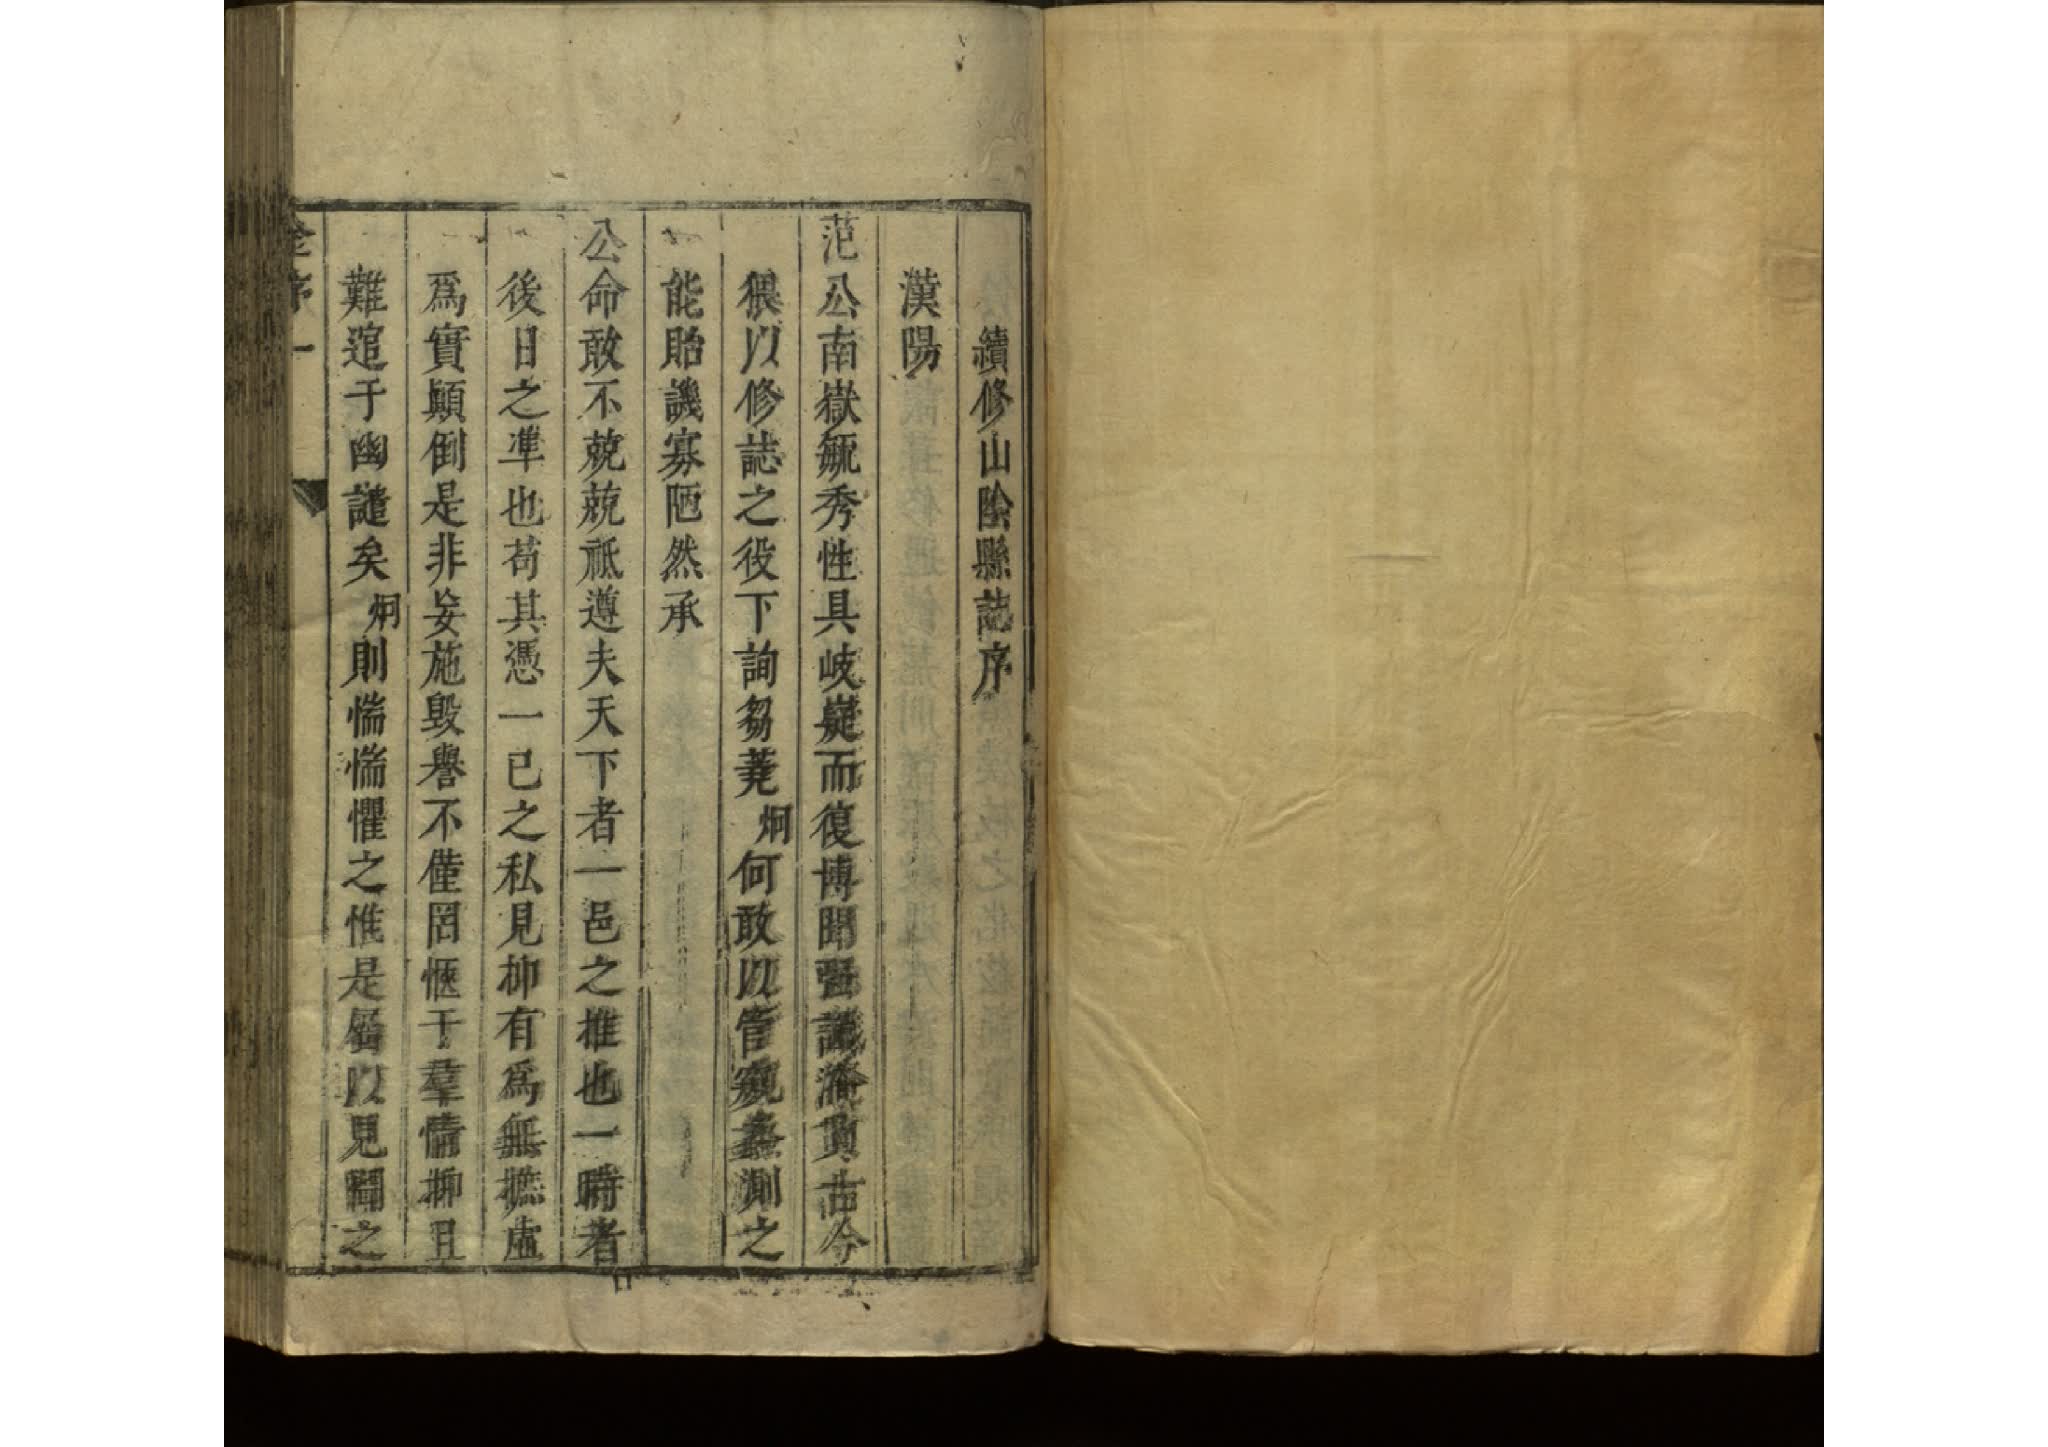 續修山陰縣誌序
漢陽
范公南嶽毓秀性具岐嶷而復博聞强識淹貫古今
猥以修誌之役下詢芻蕘炯何敢以管窺蠡測之
能貽譏寡陋然承
公命敢不兢兢祗遵夫天下者一邑之推也一時者
後日之凖也苟其憑一已之私見抑有爲無摭虛
爲實顚倒是非妄施毀譽不僅罔愜于羣情抑且
難逭于幽譴矣炯則惴惴懼之惟是屬以見聞之
序一